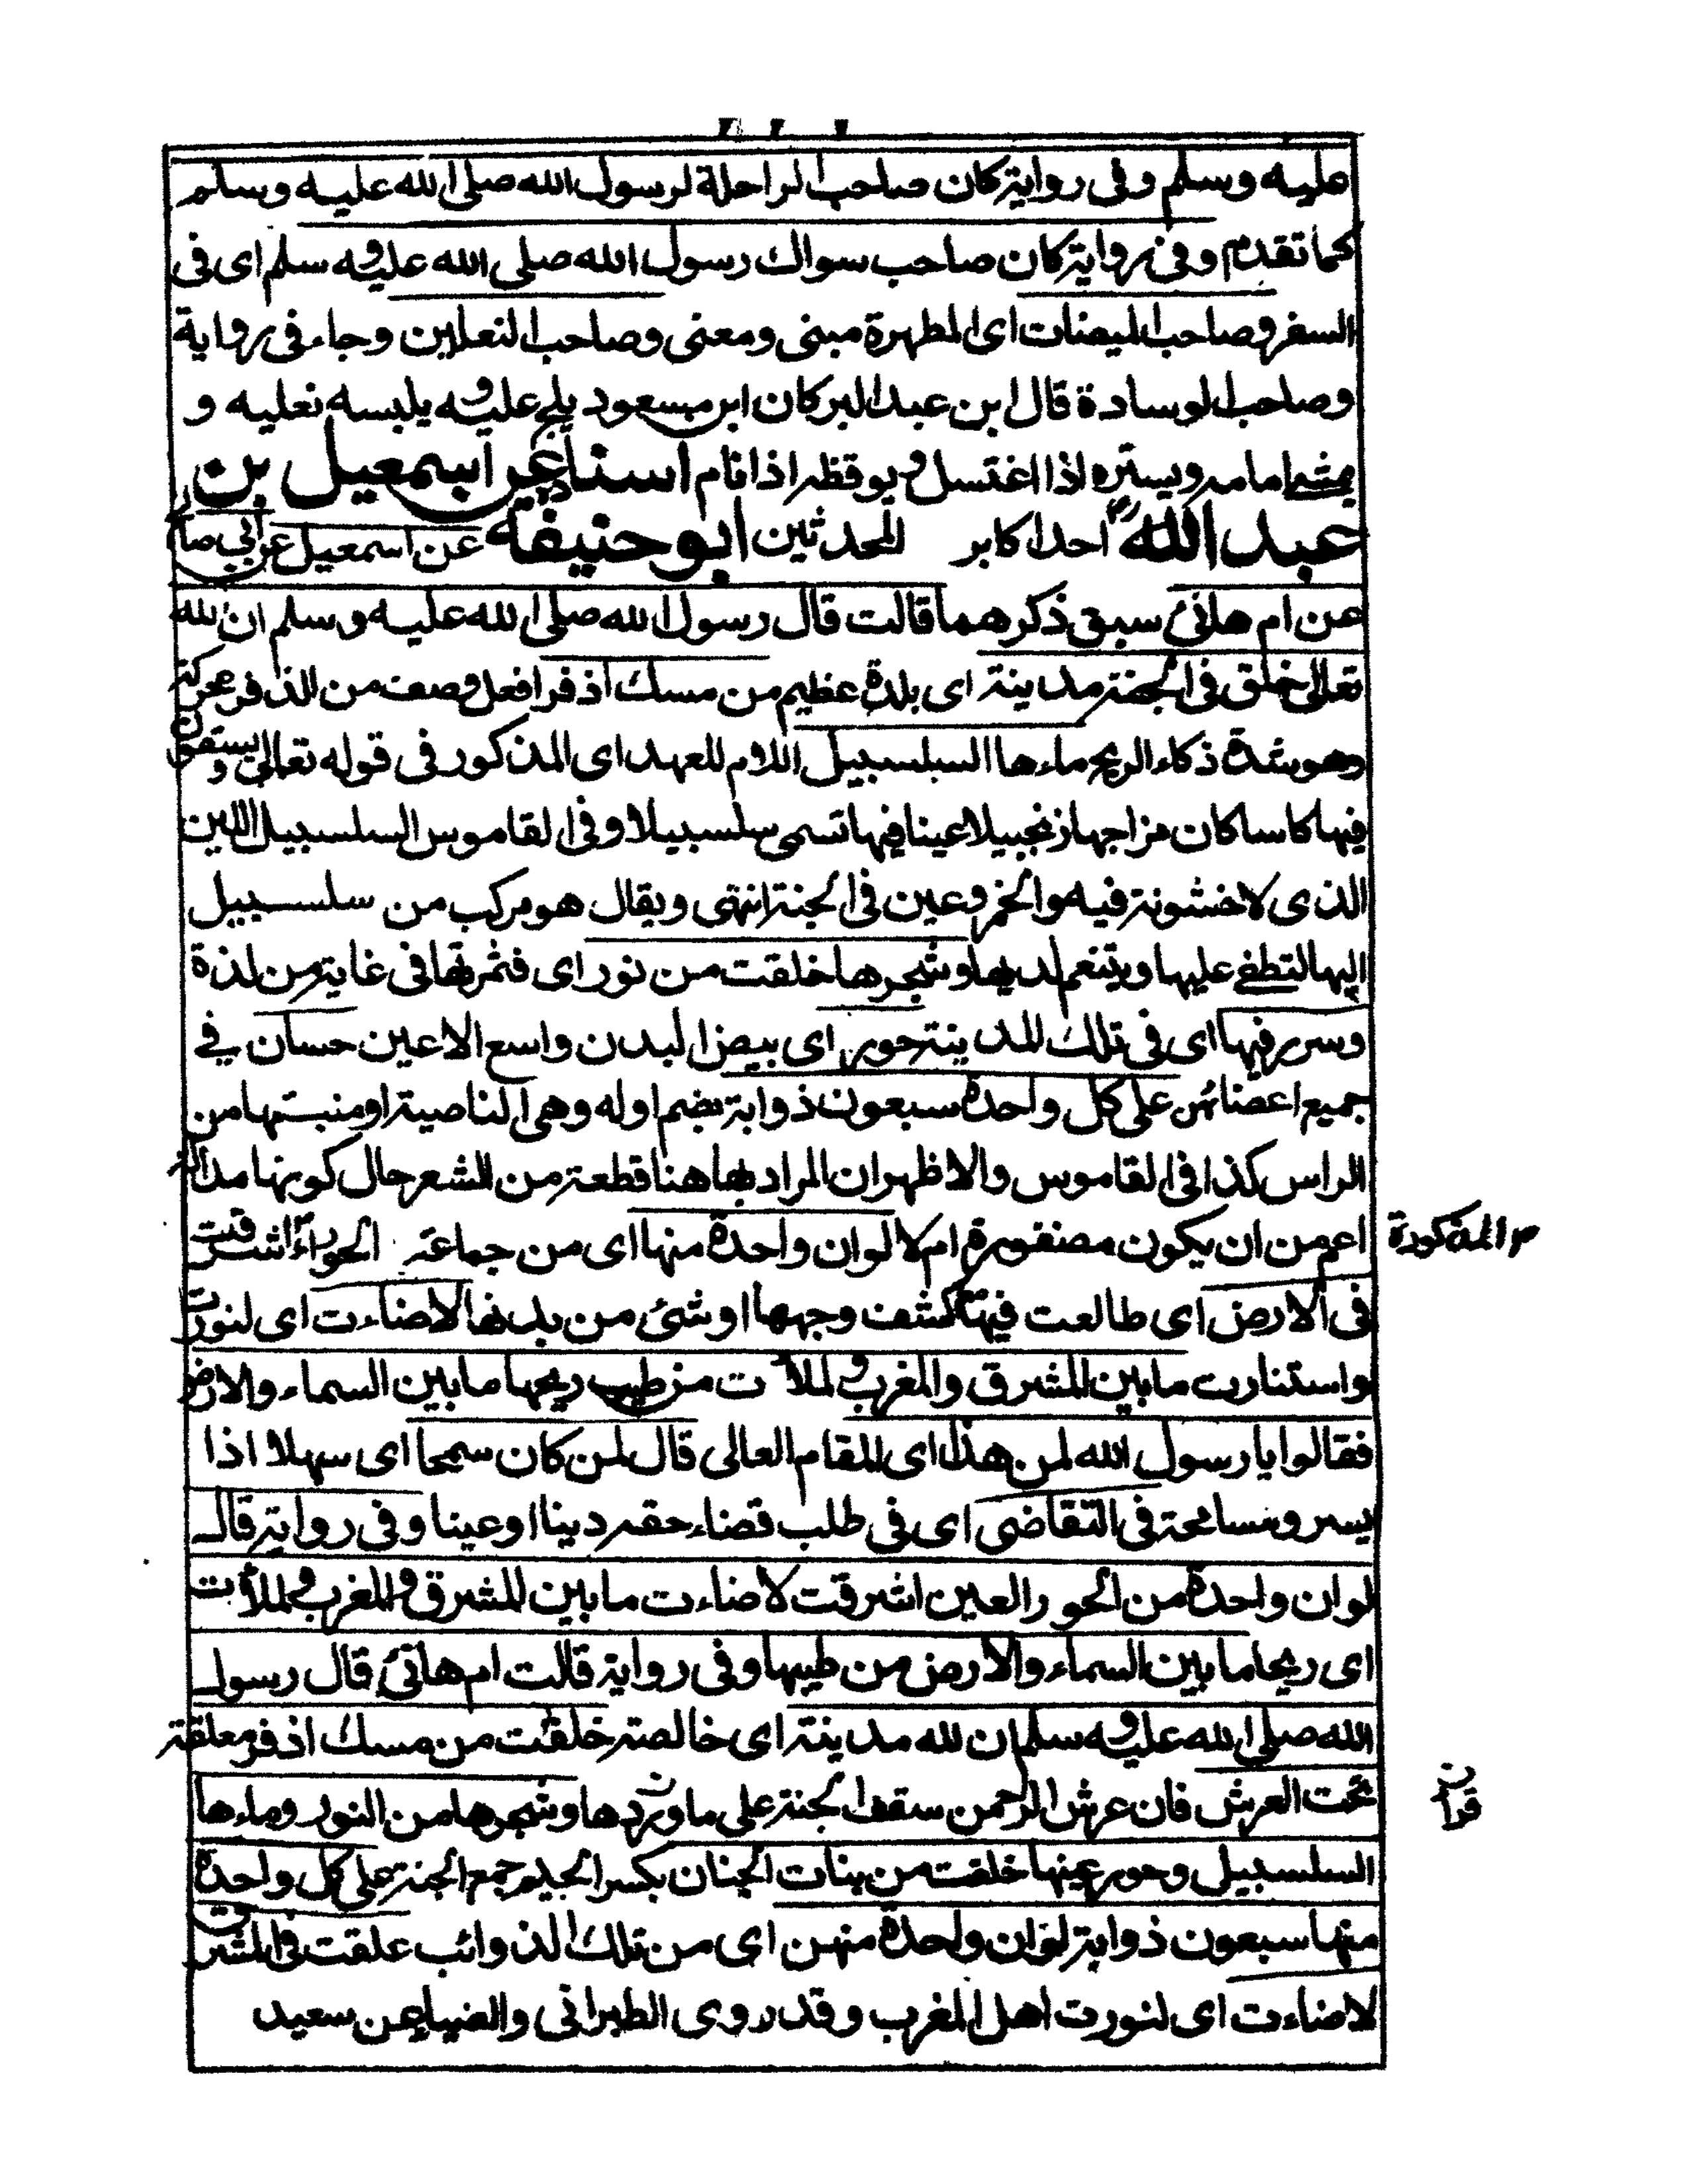 عليه وسلم وفى رواية كان صاحب الراحلة لرسول الله صلى الله عليه وسلم
كما تقدم وفى رواية كان صاحب سواك رسول الله صلى الله عليه وسلم اى فى
السفر وصاحب الميضات اى المطهرة مبنى ومعنى وصاحب النعلين وجاء فى رواية
وصاحب الوسادة قال ابن عبد البر كان ابن مسعود يلج عليه ويلبسه نعليه و
يمشى امامه ويستره اذا اغتسل ويوقظه اذا نام اسناده عن اسمعيل بن
عبد الله احد اكابر المحدثين ابو حنيفة عن اسمعيل عن ابي صالح
عن ام هانئ سبق ذكرهما قالت قال رسول الله صلى الله عليه وسلم ان لله
تعالى خلق فى الجنة مدينة اى بلدة عظيم من مسك اذفر افعل وصف من الذفر محركة
وهو شدة ذكاء الريح ماءها السلسبيل اللام للعهد اى المذكور فى قوله تعالى ويسقون
فيها كاسا كان مزاجها زنجبيلا عينا فيها تسمى سلسبيلا وفى القاموس السلسبيل اللبن
الذى لا خشونة فيه والخمر وعين فى الجنة انتهى ويقال هو مركب من سلسبيل
اليها لتطلع عليها ويتنعم لديها وشجرها خلقت من نور اى فثمرتها فى غاية من لذة
وسرر فيها اى فى تلك المدينة حور اى بيض البدن واسع الاعين حسان فے
جميع اعضائهن على كل واحدة سبعون ذوابة بضم اوله وهى الناصية او منبتها من
الراس كذا فى القاموس والاظهر ان المراد بها هنا قطعة من الشعر حال كونها
اعم من ان يكون مضفورة ام لا لو ان واحدة منها اى من جماعة الحوراء اشرقت
المذكورة
فى الارض اى طالعت فيها كشف وجهها او شئ من بدنها لاضاءت اى لنورت
واستنارت ما بين المشرق والمغرب ولملأت من طيب ريحها ما بين السماء والارض
فقالوا يا رسول الله لمن هذا اى المقام العالى قال لمن كان سمحا اى سهلا اذا
يسر ومسامحة فى التقاضى اى فى طلب قضاء حقه دينا او عينا وفى رواية قال
لو ان واحدة من الحور العين اشرقت لاضاءت ما بين المشرق والمغرب ولملأت
اى ريحا ما بين السماء والارض من طيبها وفى رواية قالت ام هانئ قال رسول
الله صلى الله عليه وسلم ان لله مدينة اى خالصة خلقت من مسك اذفر معلقة
تحت العرش فان عرش الرحمن سقف الجنة على ما ورد وشجرها من النور وماءها
السلسبيل وحور عينها خلقت من بنات الجنان بكسر الجيم جمع الجنة على كل واحدة
منها سبعون ذوابة لو ان واحدة منهن اى من تلك الذوائب علقت فى المشرق
لاضاءت اى لنورت اهل المغرب وقد روى الطبرانى والضياء عن سعيد